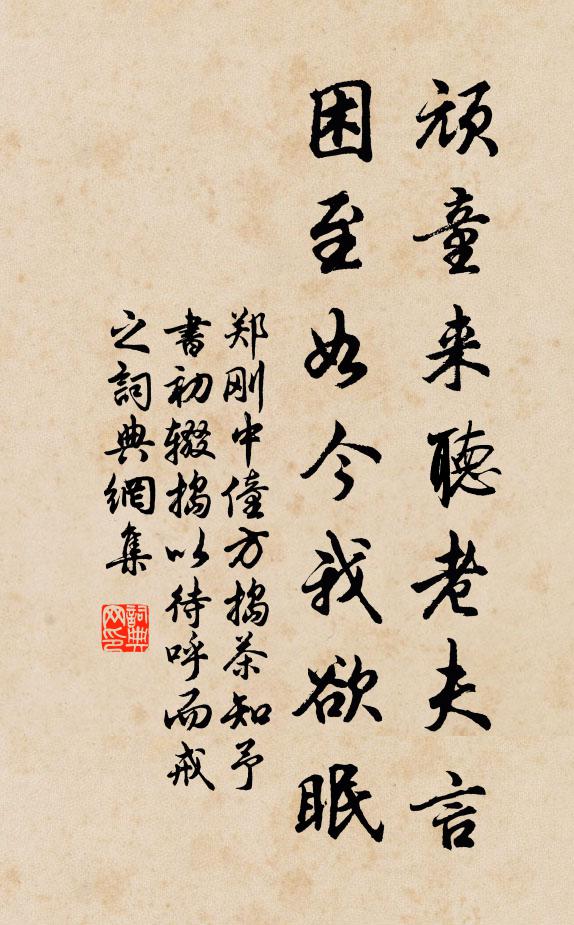 頑童来聽老夫言
困至如今我欲眠
郑刚中僮方搗茶知予
書初辍搗以待呼而戒
之詞典網集
詞典
网印